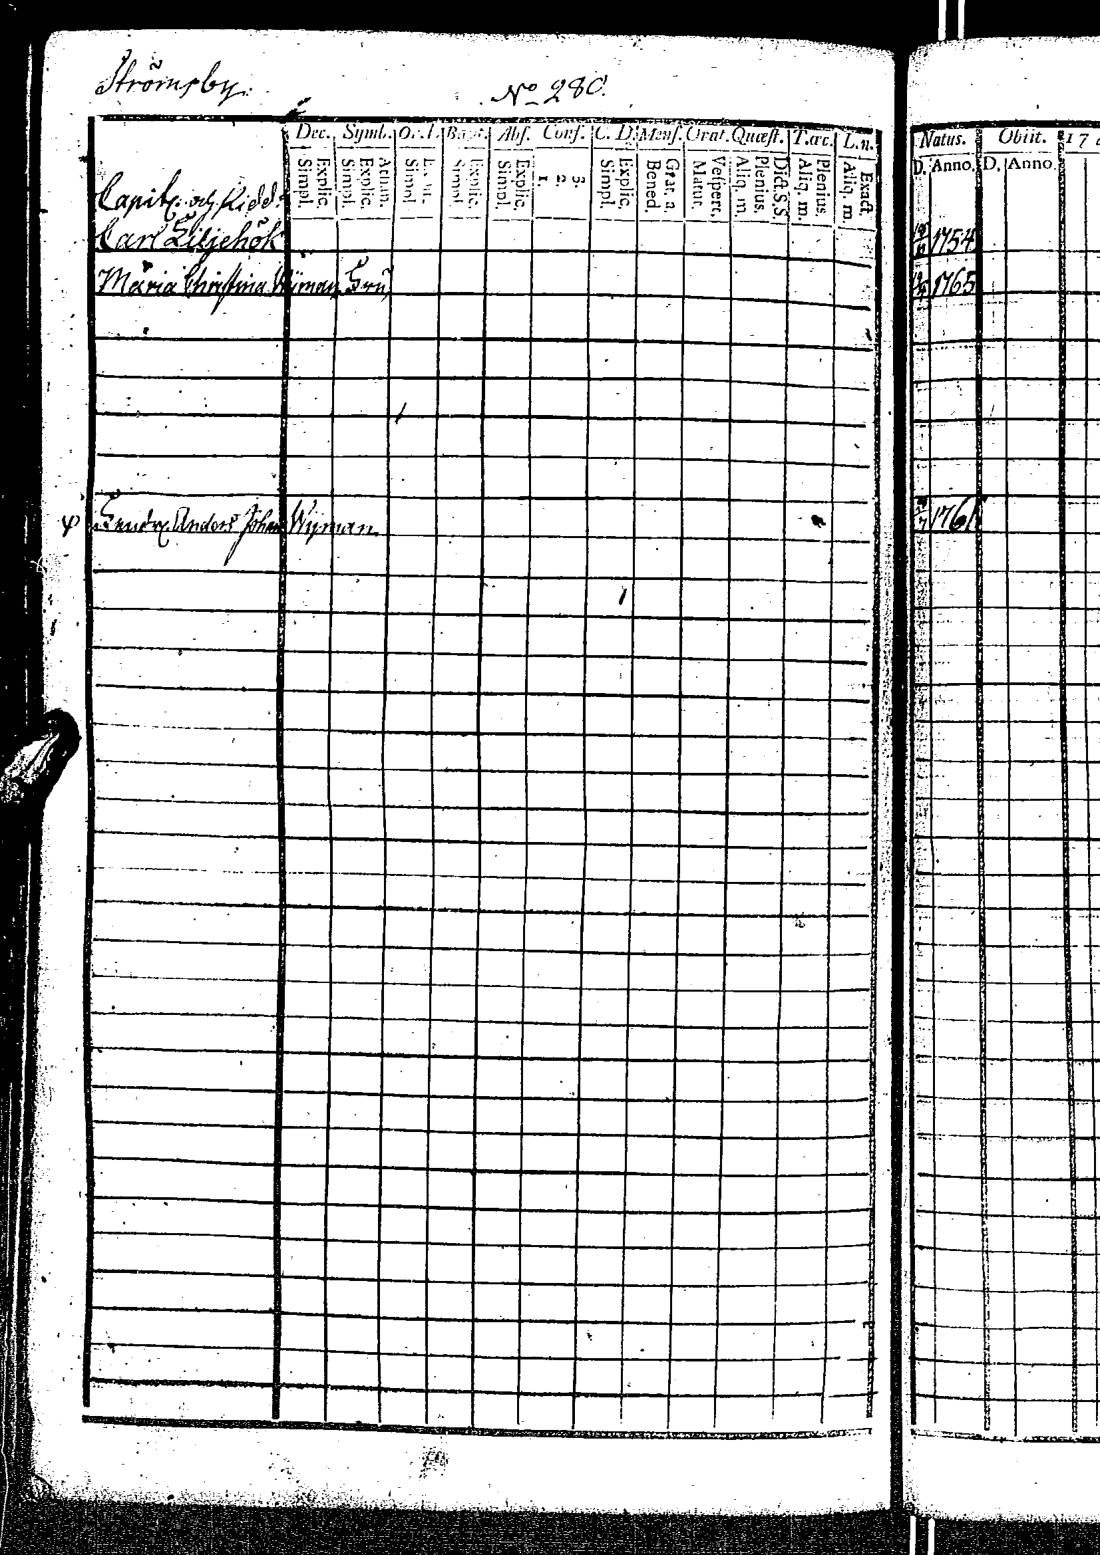 Strömsby
No 280.
Dec. Symb. Or.D. Bapt. Abs. Conf. C. D. Mens. Orat. Quæst. Tæc. L.n. Natus. Obiit. 17
Simpl. Explic. Simpl. Explic. Athan. Simpl. Simpl. Explic. Simpl. Explic. 1. 2. 3. Simpl. Explic. Bened. Grat. a. Matut. Vespert. Aliq. m. Plenius. Dict. S.S. Aliq. m. Plenius. Aliq. m. Exact. D. Anno. D. Anno.
Capit. och Ridd.
Carl Liljehök 1754
Maria Christina Wijman Fru 1765
Anders Johan Wijman